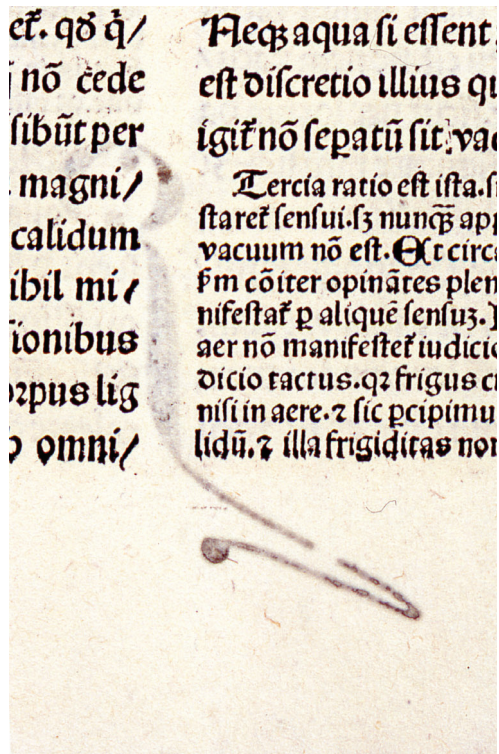 et̃. qð q̇/
nõ cede
sibũt per
magni/
calidum
ibil mi/
ionibus
orpus lig
omni/
Neqꝫ aqua si essent
est discretio illius qu
igit̃ nõ sepatũ sit vac
Tercia ratio est ista. si
staret̃ sensui. sꝫ nunqꝫ app
vacuum nõ est. Et circa
ẜm cõiter opinãtes plen
nifestat̃ ꝑ aliquẽ sensuꝫ.
aer nõ manifestet̃ iudicio
dicio tactus. qꝛ frigus cu
nisi in aere. ⁊ sic ꝑcipimu
lidũ. ⁊ illa frigiditas non